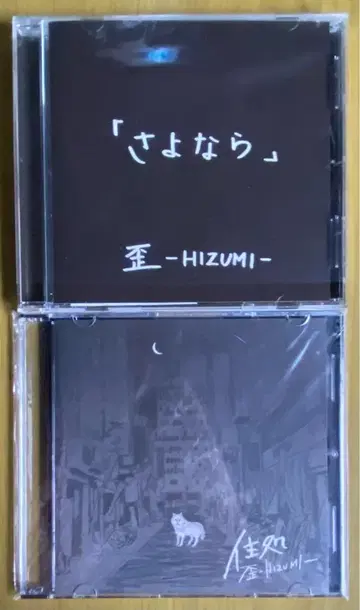 「さよなら」
歪-HIZUMI-
住処
歪-HIZUMI-